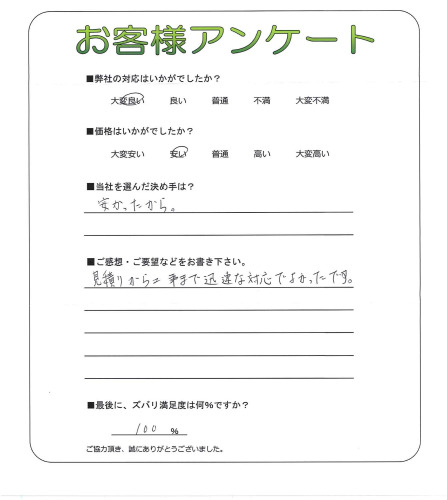 お客様アンケート
■弊社の対応はいかがでしたか？
大変良い 良い 普通 不満 大変不満
■価格はいかがでしたか？
大変安い 安い 普通 高い 大変高い
■当社を選んだ決め手は？
安かったから。
■ご感想・ご要望などをお書き下さい。
見積りから工事まで迅速な対応でよかったです。
■最後に、ズバリ満足度は何％ですか？
100 %
ご協力頂き、誠にありがとうございました。